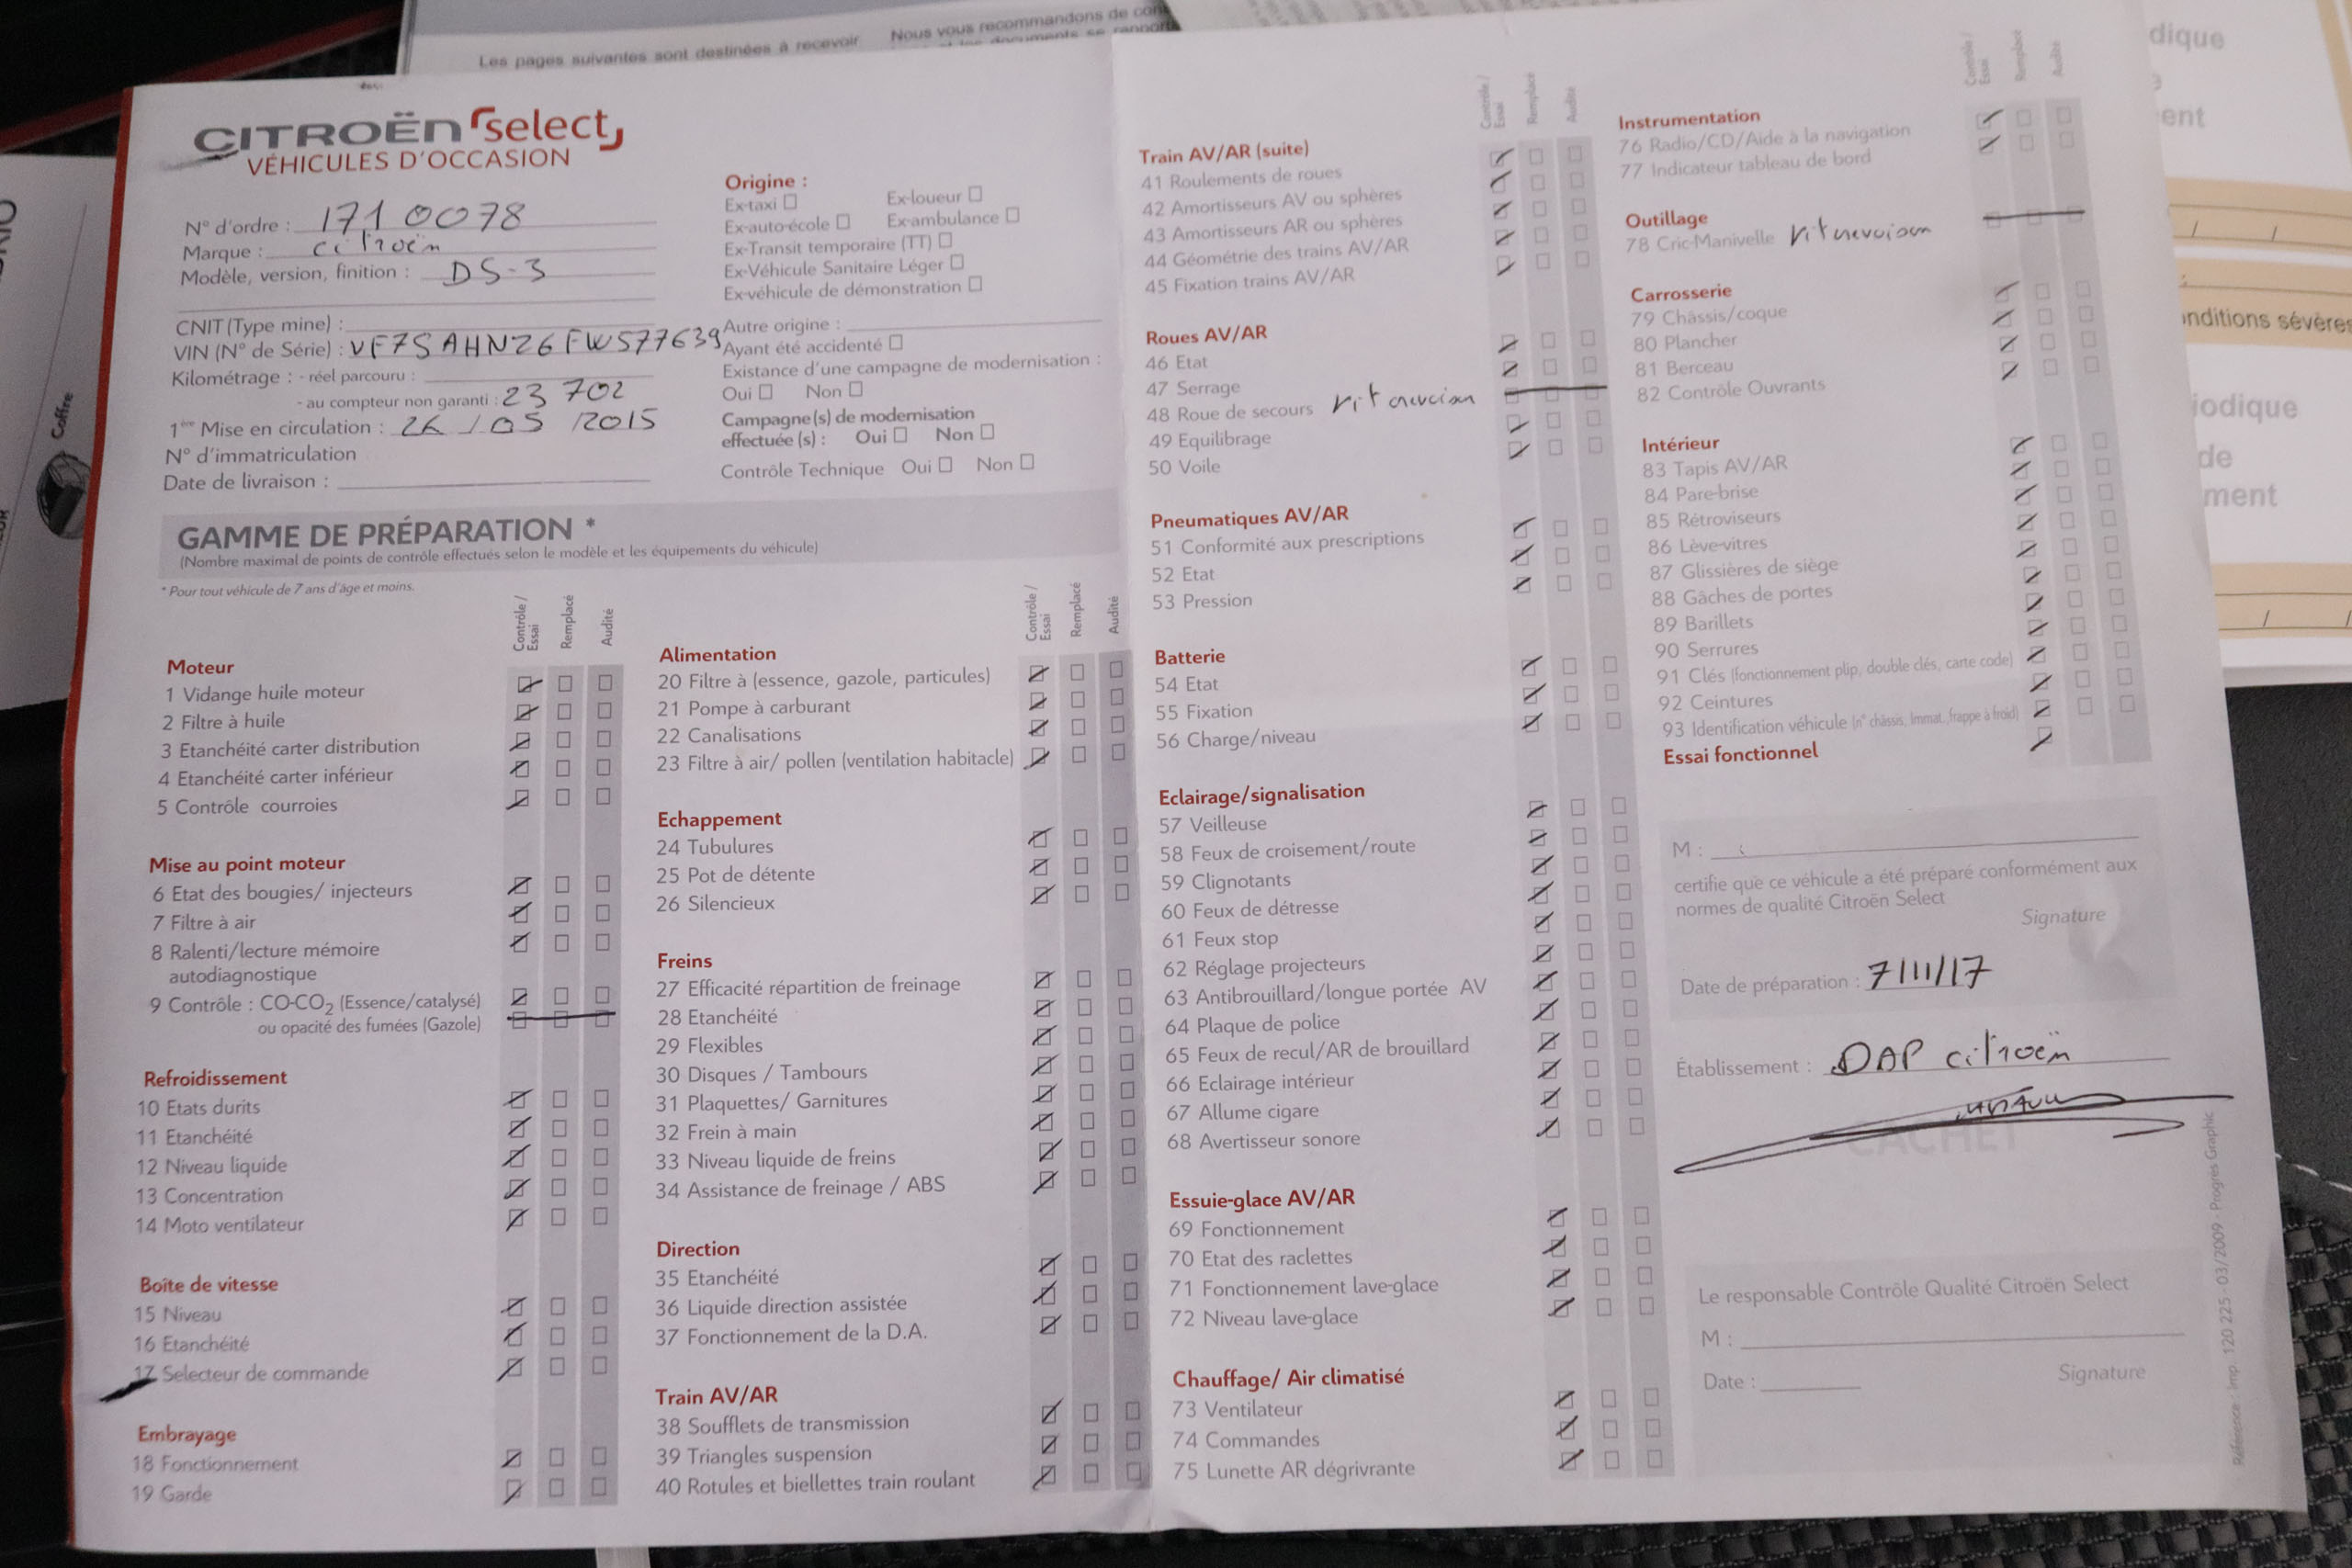 Les pages suivantes sont destinées à recevoir
Nous vous recommandons de
CITROËN select
VÉHICULES D'OCCASION
N° d'ordre : 1710078
Marque : citroën
Modèle, version, finition : DS-3
CNIT (Type mine) :
VIN (N° de Série) : VF7SAHNZ6FW577639
Kilométrage : - réel parcouru :
- au compteur non garanti : 23 702
1ère Mise en circulation : 26/05/2015
N° d'immatriculation
Date de livraison :
Origine :
Ex-taxi
Ex-loueur
Ex-auto-école
Ex-ambulance
Ex-Transit temporaire (TT)
Ex-Véhicule Sanitaire Léger
Ex-véhicule de démonstration
Autre origine :
Ayant été accidenté
Existance d'une campagne de modernisation :
Oui Non
Campagne(s) de modernisation
effectuée (s) : Oui Non
Contrôle Technique Oui Non
GAMME DE PRÉPARATION *
(Nombre maximal de points de contrôle effectués selon le modèle et les équipements du véhicule)
* Pour tout véhicule de 7 ans d'âge et moins.
Contrôle / Essai
Remplacé
Audité
Moteur
1 Vidange huile moteur
2 Filtre à huile
3 Etanchéité carter distribution
4 Etanchéité carter inférieur
5 Contrôle courroies
Mise au point moteur
6 Etat des bougies/ injecteurs
7 Filtre à air
8 Ralenti/lecture mémoire
autodiagnostique
9 Contrôle : CO-CO2 (Essence/catalysé)
ou opacité des fumées (Gazole)
Refroidissement
10 Etats durits
11 Etanchéité
12 Niveau liquide
13 Concentration
14 Moto ventilateur
Boîte de vitesse
15 Niveau
16 Etanchéité
17 Selecteur de commande
Embrayage
18 Fonctionnement
19 Garde
Contrôle / Essai
Remplacé
Audité
Alimentation
20 Filtre à (essence, gazole, particules)
21 Pompe à carburant
22 Canalisations
23 Filtre à air/ pollen (ventilation habitacle)
Echappement
24 Tubulures
25 Pot de détente
26 Silencieux
Freins
27 Efficacité répartition de freinage
28 Etanchéité
29 Flexibles
30 Disques / Tambours
31 Plaquettes/ Garnitures
32 Frein à main
33 Niveau liquide de freins
34 Assistance de freinage / ABS
Direction
35 Etanchéité
36 Liquide direction assistée
37 Fonctionnement de la D.A.
Train AV/AR
38 Soufflets de transmission
39 Triangles suspension
40 Rotules et biellettes train roulant
Contrôle / Essai
Remplacé
Audité
Train AV/AR (suite)
41 Roulements de roues
42 Amortisseurs AV ou sphères
43 Amortisseurs AR ou sphères
44 Géométrie des trains AV/AR
45 Fixation trains AV/AR
Roues AV/AR
46 Etat
47 Serrage
48 Roue de secours
49 Equilibrage
50 Voile
Pneumatiques AV/AR
51 Conformité aux prescriptions
52 Etat
53 Pression
Batterie
54 Etat
55 Fixation
56 Charge/niveau
Eclairage/signalisation
57 Veilleuse
58 Feux de croisement/route
59 Clignotants
60 Feux de détresse
61 Feux stop
62 Réglage projecteurs
63 Antibrouillard/longue portée AV
64 Plaque de police
65 Feux de recul/AR de brouillard
66 Eclairage intérieur
67 Allume cigare
68 Avertisseur sonore
Essuie-glace AV/AR
69 Fonctionnement
70 Etat des raclettes
71 Fonctionnement lave-glace
72 Niveau lave-glace
Chauffage/ Air climatisé
73 Ventilateur
74 Commandes
75 Lunette AR dégrivrante
Contrôle / Essai
Remplacé
Audité
Instrumentation
76 Radio/CD/Aide à la navigation
77 Indicateur tableau de bord
Outillage
78 Cric-Manivelle
Carrosserie
79 Châssis/coque
80 Plancher
81 Berceau
82 Contrôle Ouvrants
Intérieur
83 Tapis AV/AR
84 Pare-brise
85 Rétroviseurs
86 Lève-vitres
87 Glissières de siège
88 Gâches de portes
89 Barillets
90 Serrures
91 Clés (fonctionnement plip, double clés, carte code)
92 Ceintures
93 Identification véhicule (n° châssis, Immat., frappe à froid)
Essai fonctionnel
M :
certifie que ce véhicule a été préparé conformément aux
normes de qualité Citroën Select
Signature
Date de préparation : 7/11/17
Établissement : DAP citroën
CACHET
Le responsable Contrôle Qualité Citroën Select
M :
Date :
Signature
Référence - Imp. 120 225 - 03/2009 - Progrès Graphic
Coffre
dique
ent
nditions sévères
iodique
de
ment